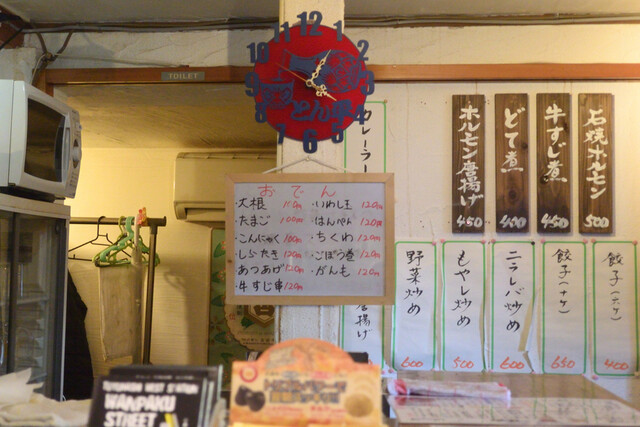 TOILET
12
1
2
3
4
6
8
9
10
11
とん平
カレーラー
おでん
・大根 110円
・たまご 100円
・こんにゃく 100円
・しらたき 120円
・あつあげ 120円
・牛すじ串 120円
・いわし玉 120円
・はんぺん 120円
・ちくわ 120円
・ごぼう巻 120円
・がんも 120円
石焼ホルモン 500
牛すじ煮 450
どて煮 400
ホルモン唐揚げ 450
餃子(大ケ) 400
餃子(ナケ) 650
ニラレバ炒め 600
もやし炒め 500
野菜炒め 600
唐揚げ
WANPAKU
STREET